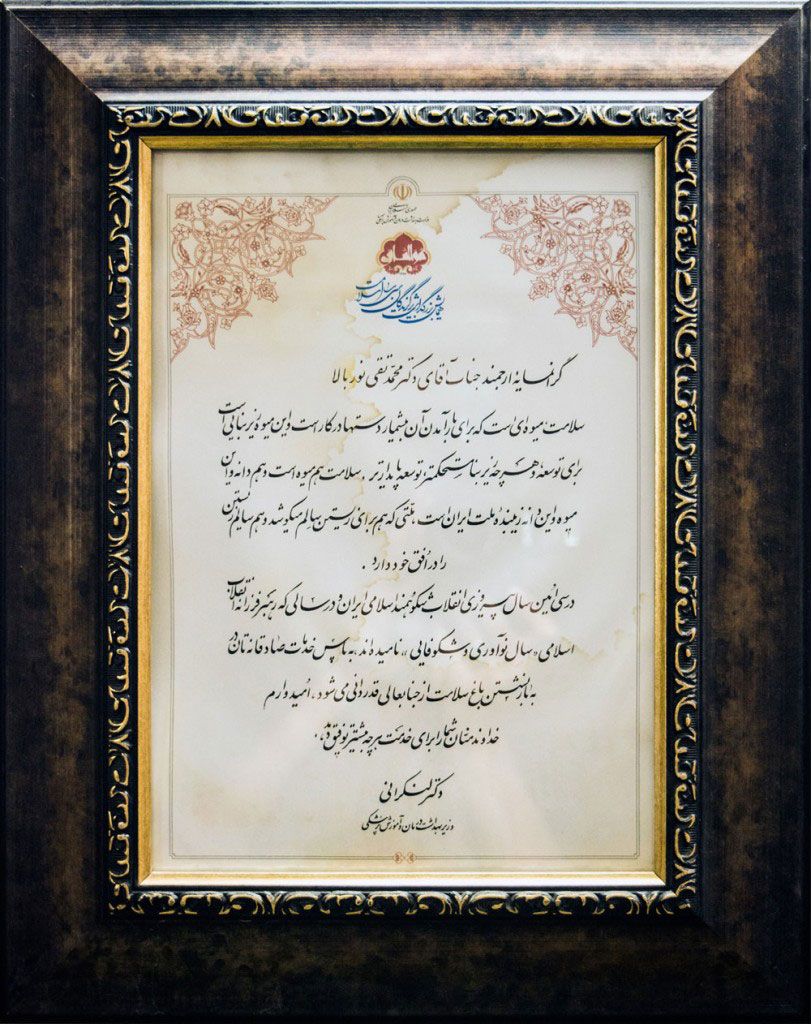 جمهوری اسلامی ایران
وزارت بهداشت، درمان و آموزش پزشکی
هوالشافی
همایش بزرگداشت برگزیدگان سرای سلامت
گرانمایه ارجمند جناب آقای دکتر محمد تقی نور بالا
سلامت میوه‌ی است که برای بار آمدن آن بیشمار دستها در کار است و این میوه زیر بنایی است
برای توسعه و هر چه زیر بنا مستحکمتر، توسعه پایدارتر . سلامت هم میوه است و هم دانه و این
میوه و این دانه زیبنده ملت ایران است، ملتی که هم برای زیستن سالم میکوشد و هم سالم زیستن
را در افق خود دارد .
در سی اُمین سال پیروزی انقلاب شکوهمند اسلامی ایران و در سالی که رهبر فرزانه انقلاب
اسلامی «سال نوآوری و شکوفایی» نامیده‌اند، به پاس خدمات صادقانه تان در
به بار نشستن باغ سلامت از جنابعالی قدردانی می شود . اُمیدوارم
خداوند منان شما را برای خدمت هر چه بیشتر توفیق دهد .
دکتر لنکرانی
وزیر بهداشت، درمان و آموزش پزشکی